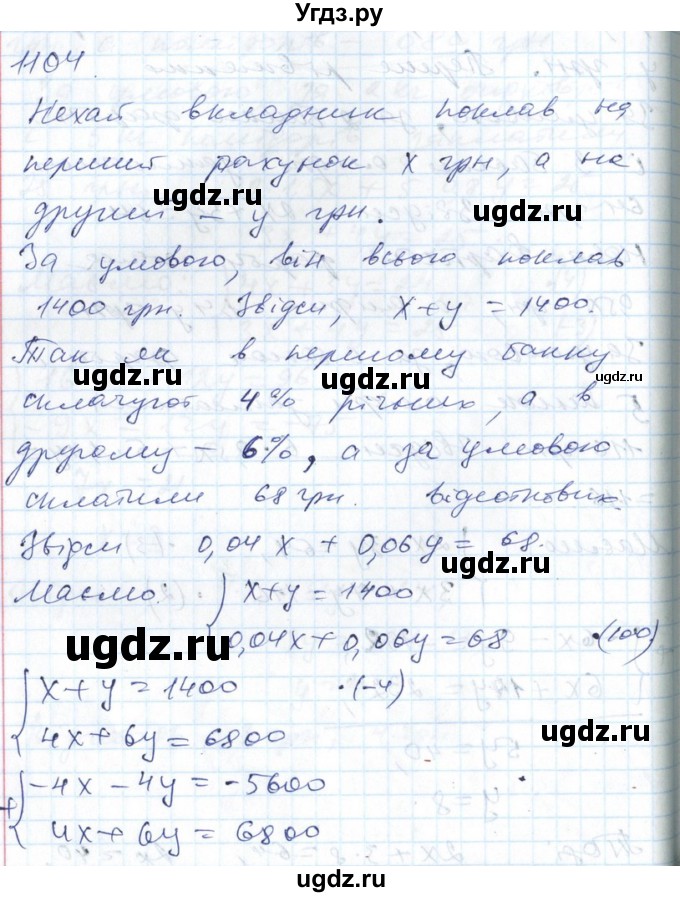 Угдз.ру
1104.
Нехай вкладник поклав на
перший рахунок x грн, а на
ugdz.ru ugdz.ru
другий – y грн.
За умовою, він всього поклав
1400 грн. Звідси, x+y = 1400.
Так як в першому банку
ugdz.ru ugdz.ru ugdz.ru
сплачують 4% річних, а в
другому – 6%, а за умовою
сплатили 68 грн. відсоткових.
Звідси 0,04x + 0,06y = 68.
ugdz.ru
Маємо: x+y = 1400
ugdz.ru 0,04x + 0,06y = 68 ·(100)
x+y = 1400 ·(-4)
4x+6y = 6800
ugdz.ru
+ -4x - 4y = -5600
4x + 6y = 6800
ugdz.ru
ugdz.ru